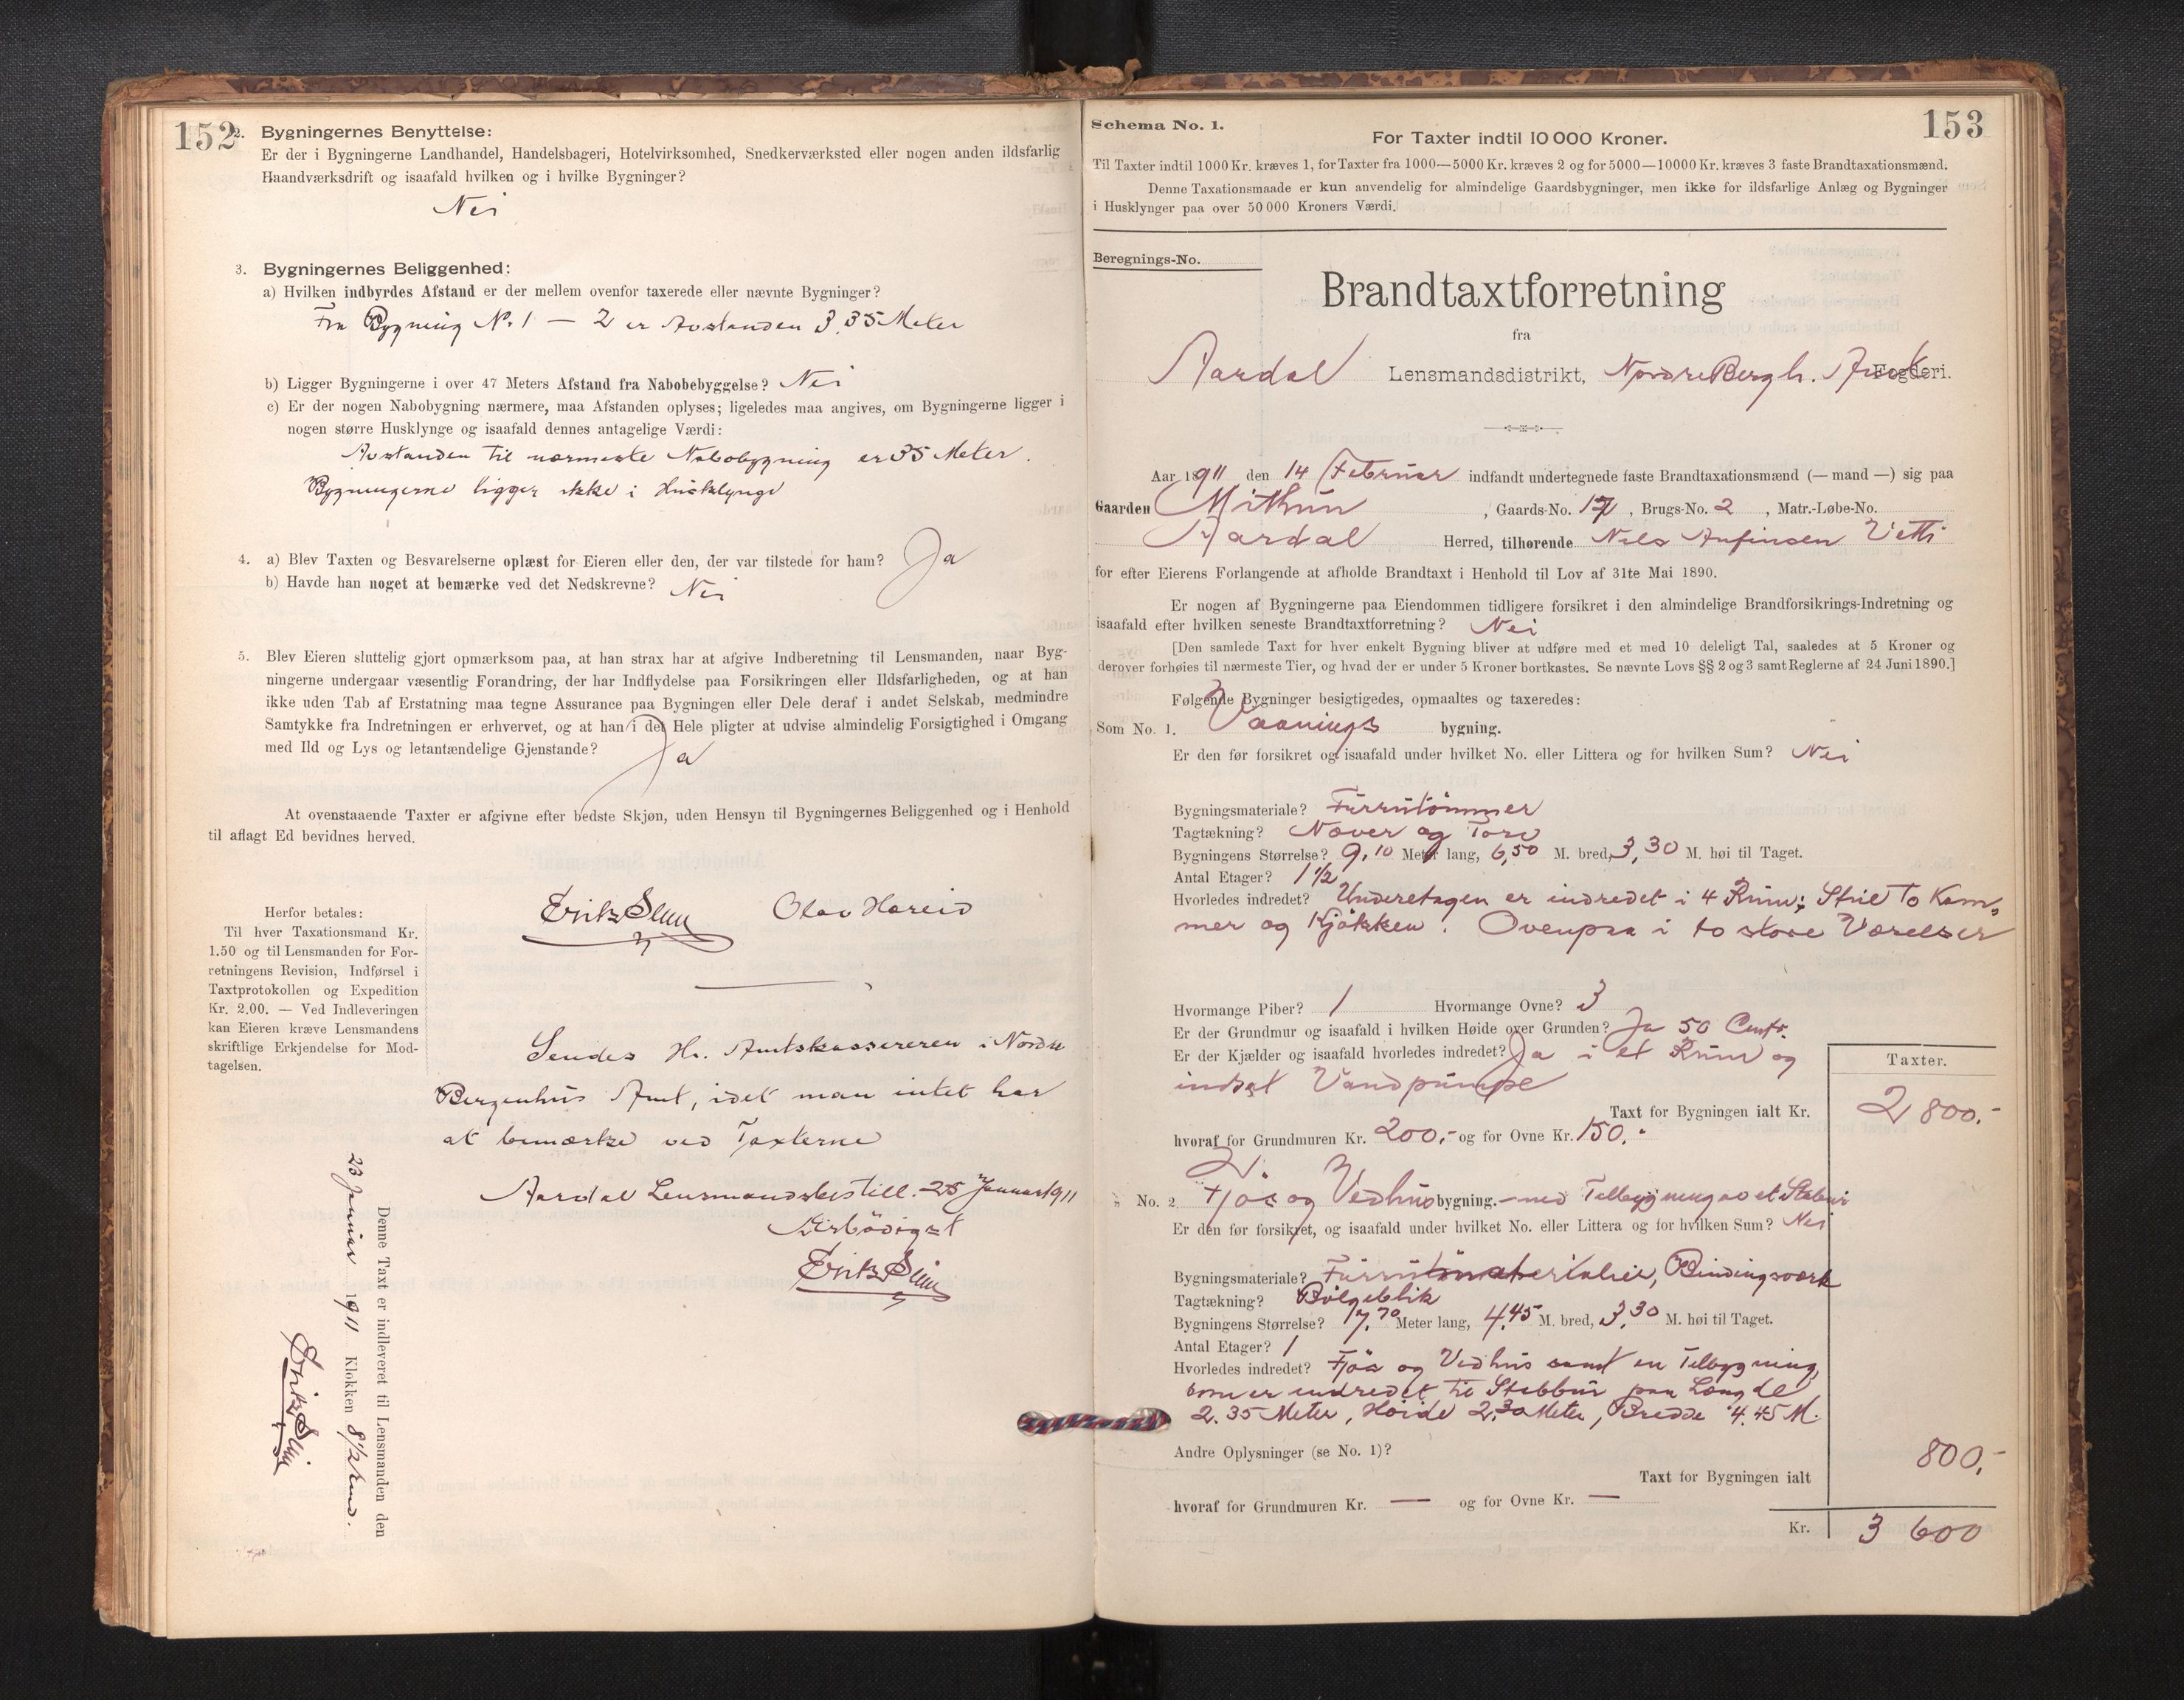 152
2. Bygningernes Benyttelse:
Er der i Bygningerne Landhandel, Handelsbageri, Hotelvirksomhed, Snedkerværksted eller nogen anden ildsfarlig
Haandværksdrift og isaafald hvilken og i hvilke Bygninger?
Nei
3. Bygningernes Beliggenhed:
a) Hvilken indbyrdes Afstand er der mellem ovenfor taxerede eller nævnte Bygninger?
Fra Bygning No. 1 — 2 er Avstanden 3,35 Meter
b) Ligger Bygningerne i over 47 Meters Afstand fra Nabobebyggelse? Nei
c) Er der nogen Nabobygning nærmere, maa Afstanden oplyses; ligeledes maa angives, om Bygningerne ligger i
nogen større Husklynge og isaafald dennes antagelige Værdi:
Avstanden til nærmeste Nabobygning er 35 Meter.
Bygningerne ligger ikke i Husklynge
4. a) Blev Taxten og Besvarelserne oplæst for Eieren eller den, der var tilstede for ham? Ja
b) Havde han noget at bemærke ved det Nedskrevne? Nei
5. Blev Eieren sluttelig gjort opmærksom paa, at han strax har at afgive Indberetning til Lensmanden, naar Byg-
ningerne undergaar væsentlig Forandring, der har Indflydelse paa Forsikringen eller Ildsfarligheden, og at han
ikke uden Tab af Erstatning maa tegne Assurance paa Bygningen eller Dele deraf i andet Selskab, medmindre
Samtykke fra Indretningen er erhvervet, og at han i det Hele pligter at udvise almindelig Forsigtighed i Omgang
med Ild og Lys og letantændelige Gjenstande?
Ja
At ovenstaaende Taxter er afgivne efter bedste Skjøn, uden Hensyn til Bygningernes Beliggenhed og i Henhold
til aflagt Ed bevidnes herved.
Erik Slinn Olav Hareid
Herfor betales:
Til hver Taxationsmand Kr.
1.50 og til Lensmanden for For-
retningens Revision, Indførsel i
Taxtprotokollen og Expedition
Kr. 2.00. — Ved Indleveringen
kan Eieren kræve Lensmandens
skriftlige Erkjendelse for Mod-
tagelsen.
Sendes Hr. Amtskassereren i Nordre
Bergenhus Amt, idet man intet har
at bemærke ved Taxterne
Aardal Lensmandsbestill. 25 Januar 1911
Ærbödigst
Erik Slinn
Denne Taxt er indleveret til Lensmanden den
23 Januar 1911 Klokken 8 1/2
Erik Slinn
153
Schema No. 1.
For Taxter indtil 10 000 Kroner.
Til Taxter indtil 1000 Kr. kræves 1, for Taxter fra 1000—5000 Kr. kræves 2 og for 5000—10000 Kr. kræves 3 faste Brandtaxationsmænd.
Denne Taxationsmaade er kun anvendelig for almindelige Gaardsbygninger, men ikke for ildsfarlige Anlæg og Bygninger
i Husklynger paa over 50 000 Kroners Værdi.
Beregnings-No.
Brandtaxtforretning
fra
Aardal Lensmandsdistrikt, Nordre Bergh. Amt Fogderi.
Aar 1911 den 14 Februar indfandt undertegnede faste Brandtaxationsmænd (— mand —) sig paa
Gaarden Mithun, Gaards-No. 17, Brugs-No. 2, Matr.-Løbe-No.
Aardal Herred, tilhørende Nels Anfinsen Vetti
for efter Eierens Forlangende at afholde Brandtaxt i Henhold til Lov af 31te Mai 1890.
Er nogen af Bygningerne paa Eiendommen tidligere forsikret i den almindelige Brandforsikrings-Indretning og
isaafald efter hvilken seneste Brandtaxtforretning? Nei
[Den samlede Taxt for hver enkelt Bygning bliver at udføre med et med 10 deleligt Tal, saaledes at 5 Kroner og
derover forhøies til nærmeste Tier, og hvad der er under 5 Kroner bortkastes. Se nævnte Lovs §§ 2 og 3 samt Reglerne af 24 Juni 1890.]
Følgende Bygninger besigtigedes, opmaaltes og taxeredes:
Som No. 1. Vaanings bygning.
Er den før forsikret og isaafald under hvilket No. eller Littera og for hvilken Sum? Nei
Bygningsmateriale? Furrutömmer
Tagtækning? Næver og Torv
Bygningens Størrelse? 9,10 Meter lang, 6,50 M. bred, 3,30 M. høi til Taget.
Antal Etager? 1 1/2
Hvorledes indredet? Underetagen er indredet i 4 Rum; Stue to Kam-
mer og Kjökken. Ovenpaa i to store Værelser
Hvormange Piber? 1 Hvormange Ovne? 3
Er der Grundmur og isaafald i hvilken Høide over Grunden? Ja 50 Centr.
Er der Kjælder og isaafald hvorledes indredet? Ja i et Rum og
indsat Vandpumpe
Taxter.
Taxt for Bygningen ialt Kr. 2 800.-
hvoraf for Grundmuren Kr. 200.- og for Ovne Kr. 150.-
No. 2. Fjös og Vedhus bygning. - med Tilbygning av et Stabur
Er den før forsikret, og isaafald under hvilket No. eller Littera og for hvilken Sum? Nei
Bygningsmateriale? Furrumaterialier, Bindingsværk
Tagtækning? Bölgeblik
Bygningens Størrelse? 7,70 Meter lang, 4,45 M. bred, 3,30 M. høi til Taget.
Antal Etager? 1
Hvorledes indredet? Fjös og Vedhus samt en Tilbygning,
som er indredet til Stabbur paa Længde
2.35 Meter, Höide 2,30 Meter, Bredde 4.45 M.
Andre Oplysninger (se No. 1)?
Taxt for Bygningen ialt 800,-
hvoraf for Grundmuren Kr. — og for Ovne Kr. —
Kr. 3 600